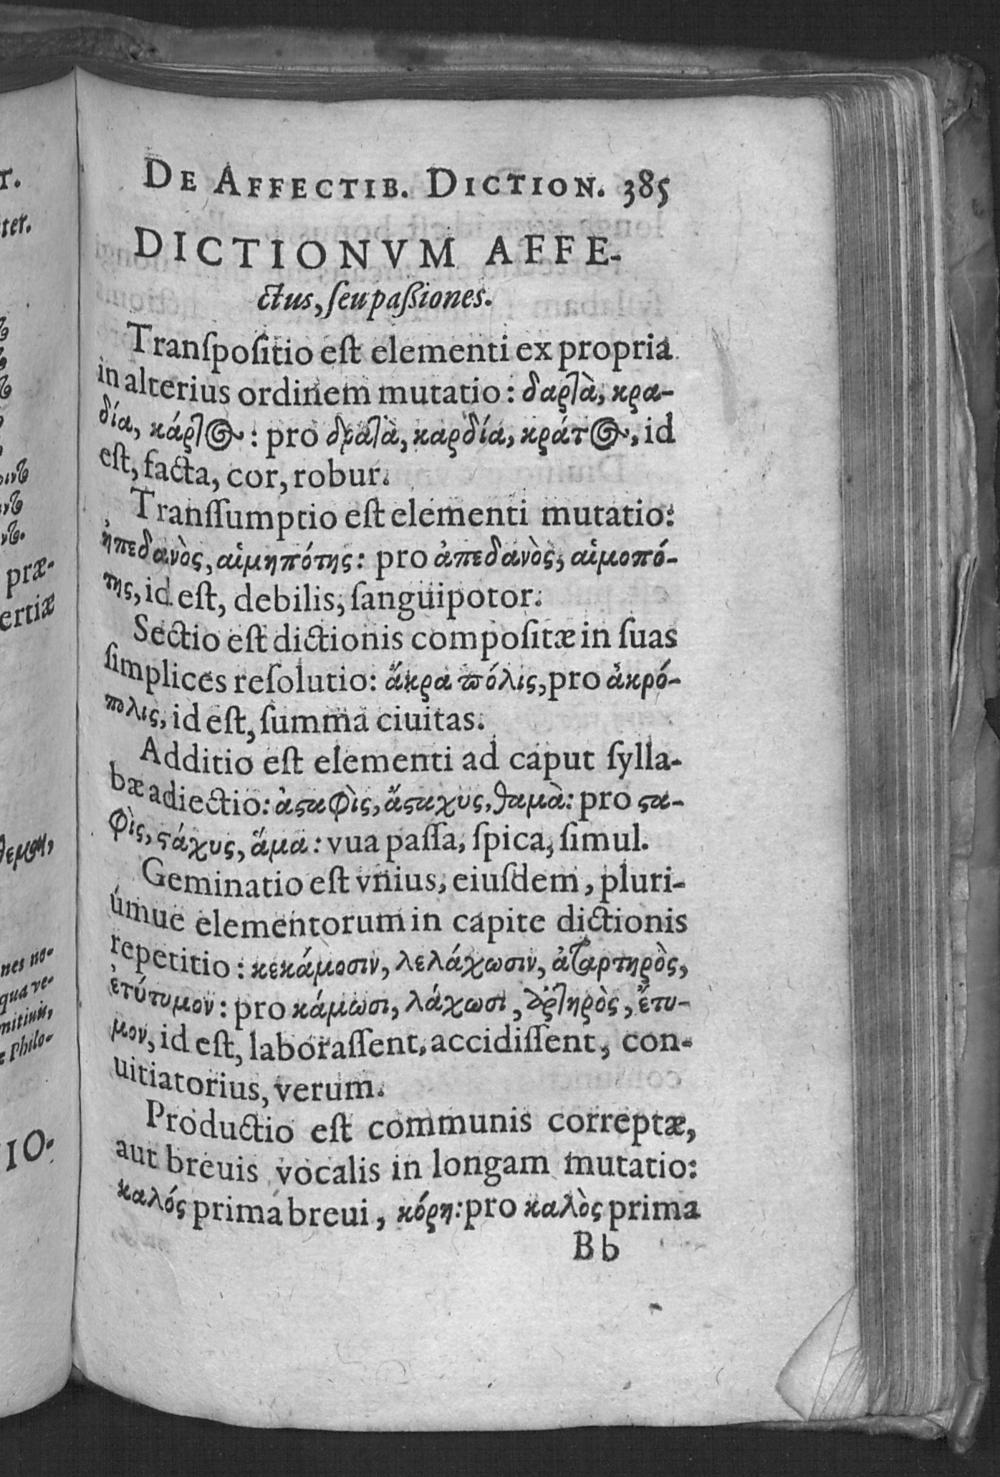 DE AFFECTIB. DICTION. 385
DICTIONVM AFFE-
ctus, ſeu paßiones.
Tranſpoſitio eſt elementi ex propria
in alterius ordinem mutatio: δαρτὰ, κρα-
δία, κάρτος: pro δρατὰ, καρδία, κράτος, id
eſt, facta, cor, robur.
Tranſſumptio eſt elementi mutatio:
ἠπεδανὸς, αἱμηπότης: pro ἀπεδανὸς, αἱμοπό-
της, id eſt, debilis, ſanguipotor.
Sectio eſt dictionis compoſitæ in ſuas
ſimplices reſolutio: ἄκρα πόλις, pro ἀκρό-
πολις, id eſt, ſumma ciuitas.
Additio eſt elementi ad caput ſylla-
bæ adiectio: ἀσαφὶς, ἄσαχυς, θαμὰ: pro ςα-
φὶς, ςάχυς, ἅμα: vua paſſa, ſpica, ſimul.
Geminatio eſt vnius, eiuſdem, pluri-
úmue elementorum in capite dictionis
repetitio: κεκάμοσιν, λελάχωσιν, ἀταρτηρὸς,
ἐτύτυμον: pro κάμωσι, λάχωσι, ἀρτηρὸς, ἔτυ-
μον, id eſt, laboraſſent, accidiſſent, con-
uitiatorius, verum.
Productio eſt communis correptæ,
aut breuis vocalis in longam mutatio:
καλός prima breui, κόρη: pro καλὸς prima
Bb
præ-
ertiæ
nes no-
qua ve-
nitiuus,
Philo-
IO-